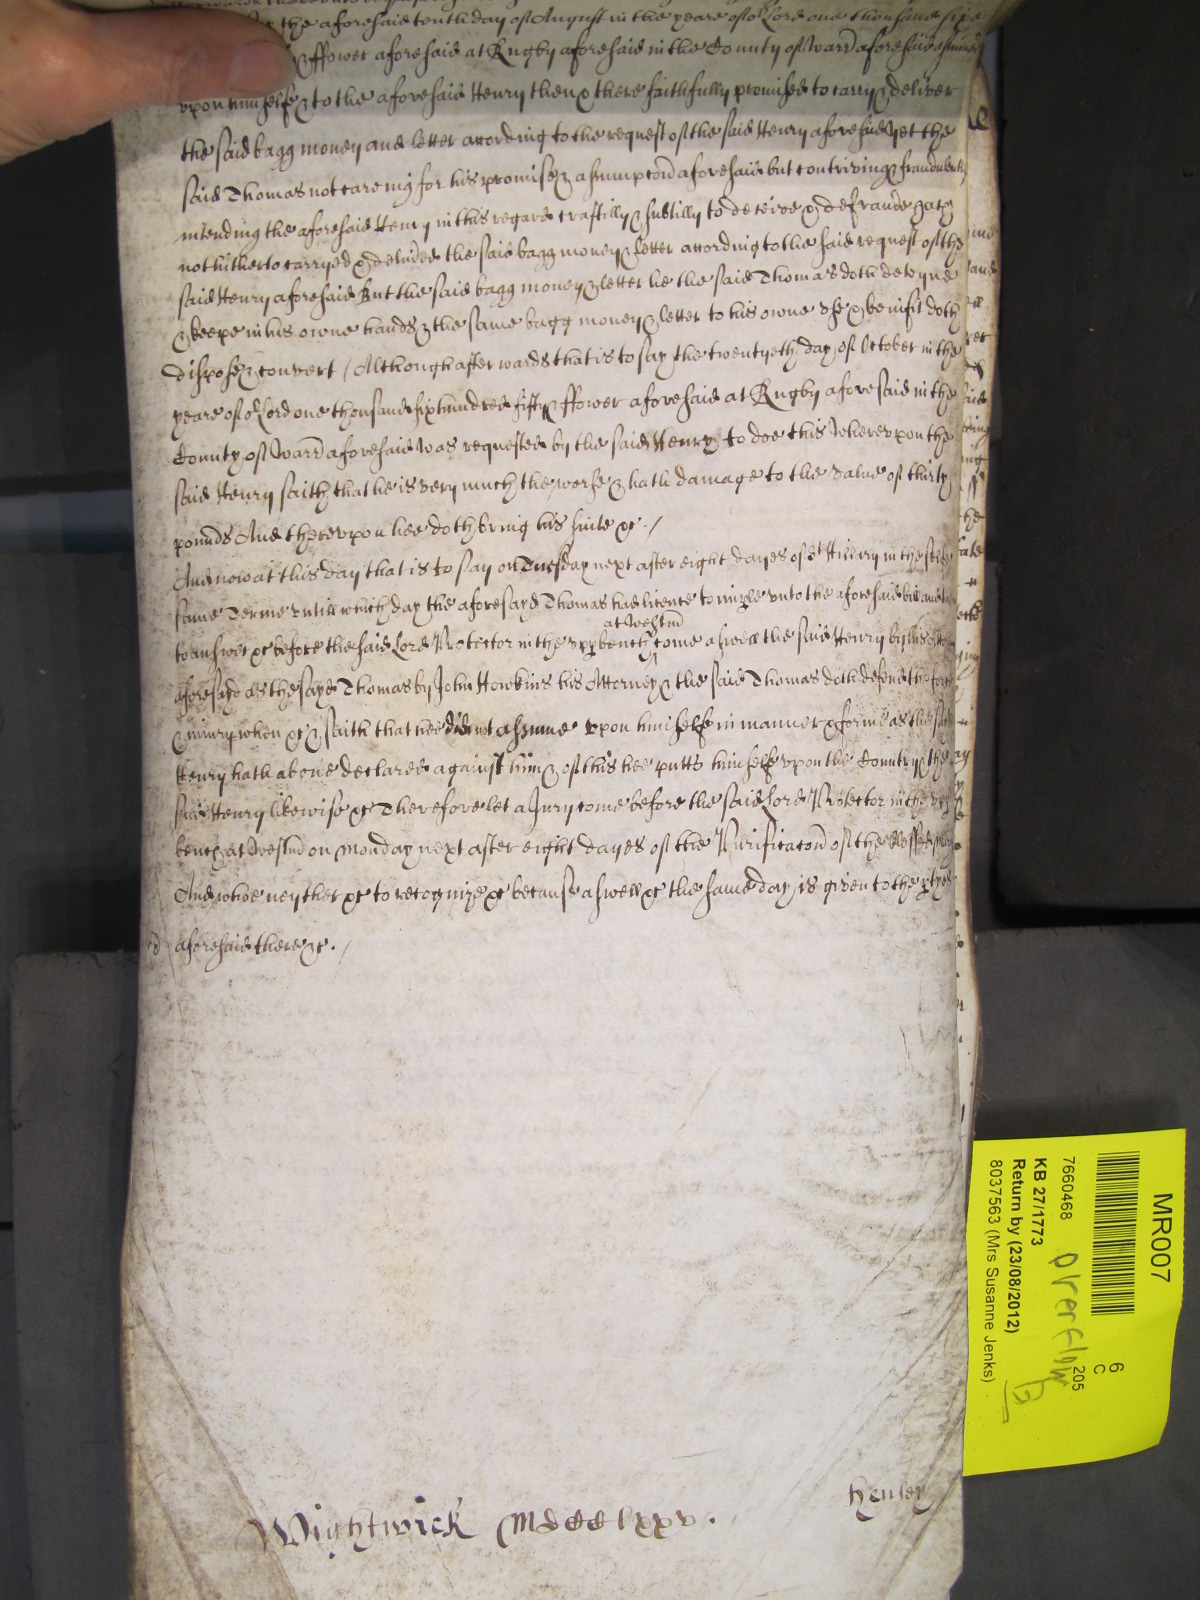 the aforesaid tenth day of August in the yeare of oʳ Lord one thousand sixe
& ffower aforesaid at Rugby aforesaid in the County of Warr aforesaid assumed
vpon himselfe & to the aforesaid Henry then & there faithfully promised to carry & deliver
the said bagg money and letter according to the request of the said Henry aforesaid yet the
said Thomas not careing for his promise & assumpcon aforesaid but contriving & fraudulently
intending the aforesaid Henry in this regard craftilly & subtilly to deceive & defraude hath
not hitherto carryed & delivered the said bagg money & letter according to the said request of the
said Henry aforesaid But the said bagg money & letter he the said Thomas doth deteyne
& keepe in his owne hands & the same bagg money & letter to his owne vse & benifit doth
dispose & convert / Although afterwards that is to say the twentyeth day of October in the
yeare of oʳ Lord one thousand six hundred fifty & ffower aforesaid at Rugby aforesaid in the
County of Warr aforesaid was requested by the said Henry to doe this Wherevpon the
said Henry saith that he is very much the worse & hath damage to the value of thirty
pounds And therevpon hee doth bring his suite &c. /
And now at this day that is to say on Tuesday next after eight dayes of St Hillary in the selfe
same Terme vntill which day the aforesayd Thomas had licence to imple vnto the aforesaid bill and
to answer &c before the said Lord Protector in the vpp bench at Westmᵈ come aswell the said Henry by his Attorney
aforesayd as the sayd Thomas by John Hawkins his Attorney & the said Thomas doth defend the force
& iniury when &c & saith that hee did not assume vpon himselfe in manner & forme as the said
Henry hath aboue declared against him & of this hee putts himselfe vpon the Country & the
said Henry likewise &c Therefore let a Jury come before the said Lord Protector in the vpp
bench at Westmᵈ on Monday next after eight dayes of the Purificacon of the blessed Mary
And who neyther &c to recognize &c because aswell &c the same day is given to the ptyes
aforesaid there &c. /
Wightwick Mdccclxxv.
Henley
MR007
7660468
KB 27/1773
Return by (23/08/2012)
8037563 (Mrs Susanne Jenks)
6
C
205
overflow